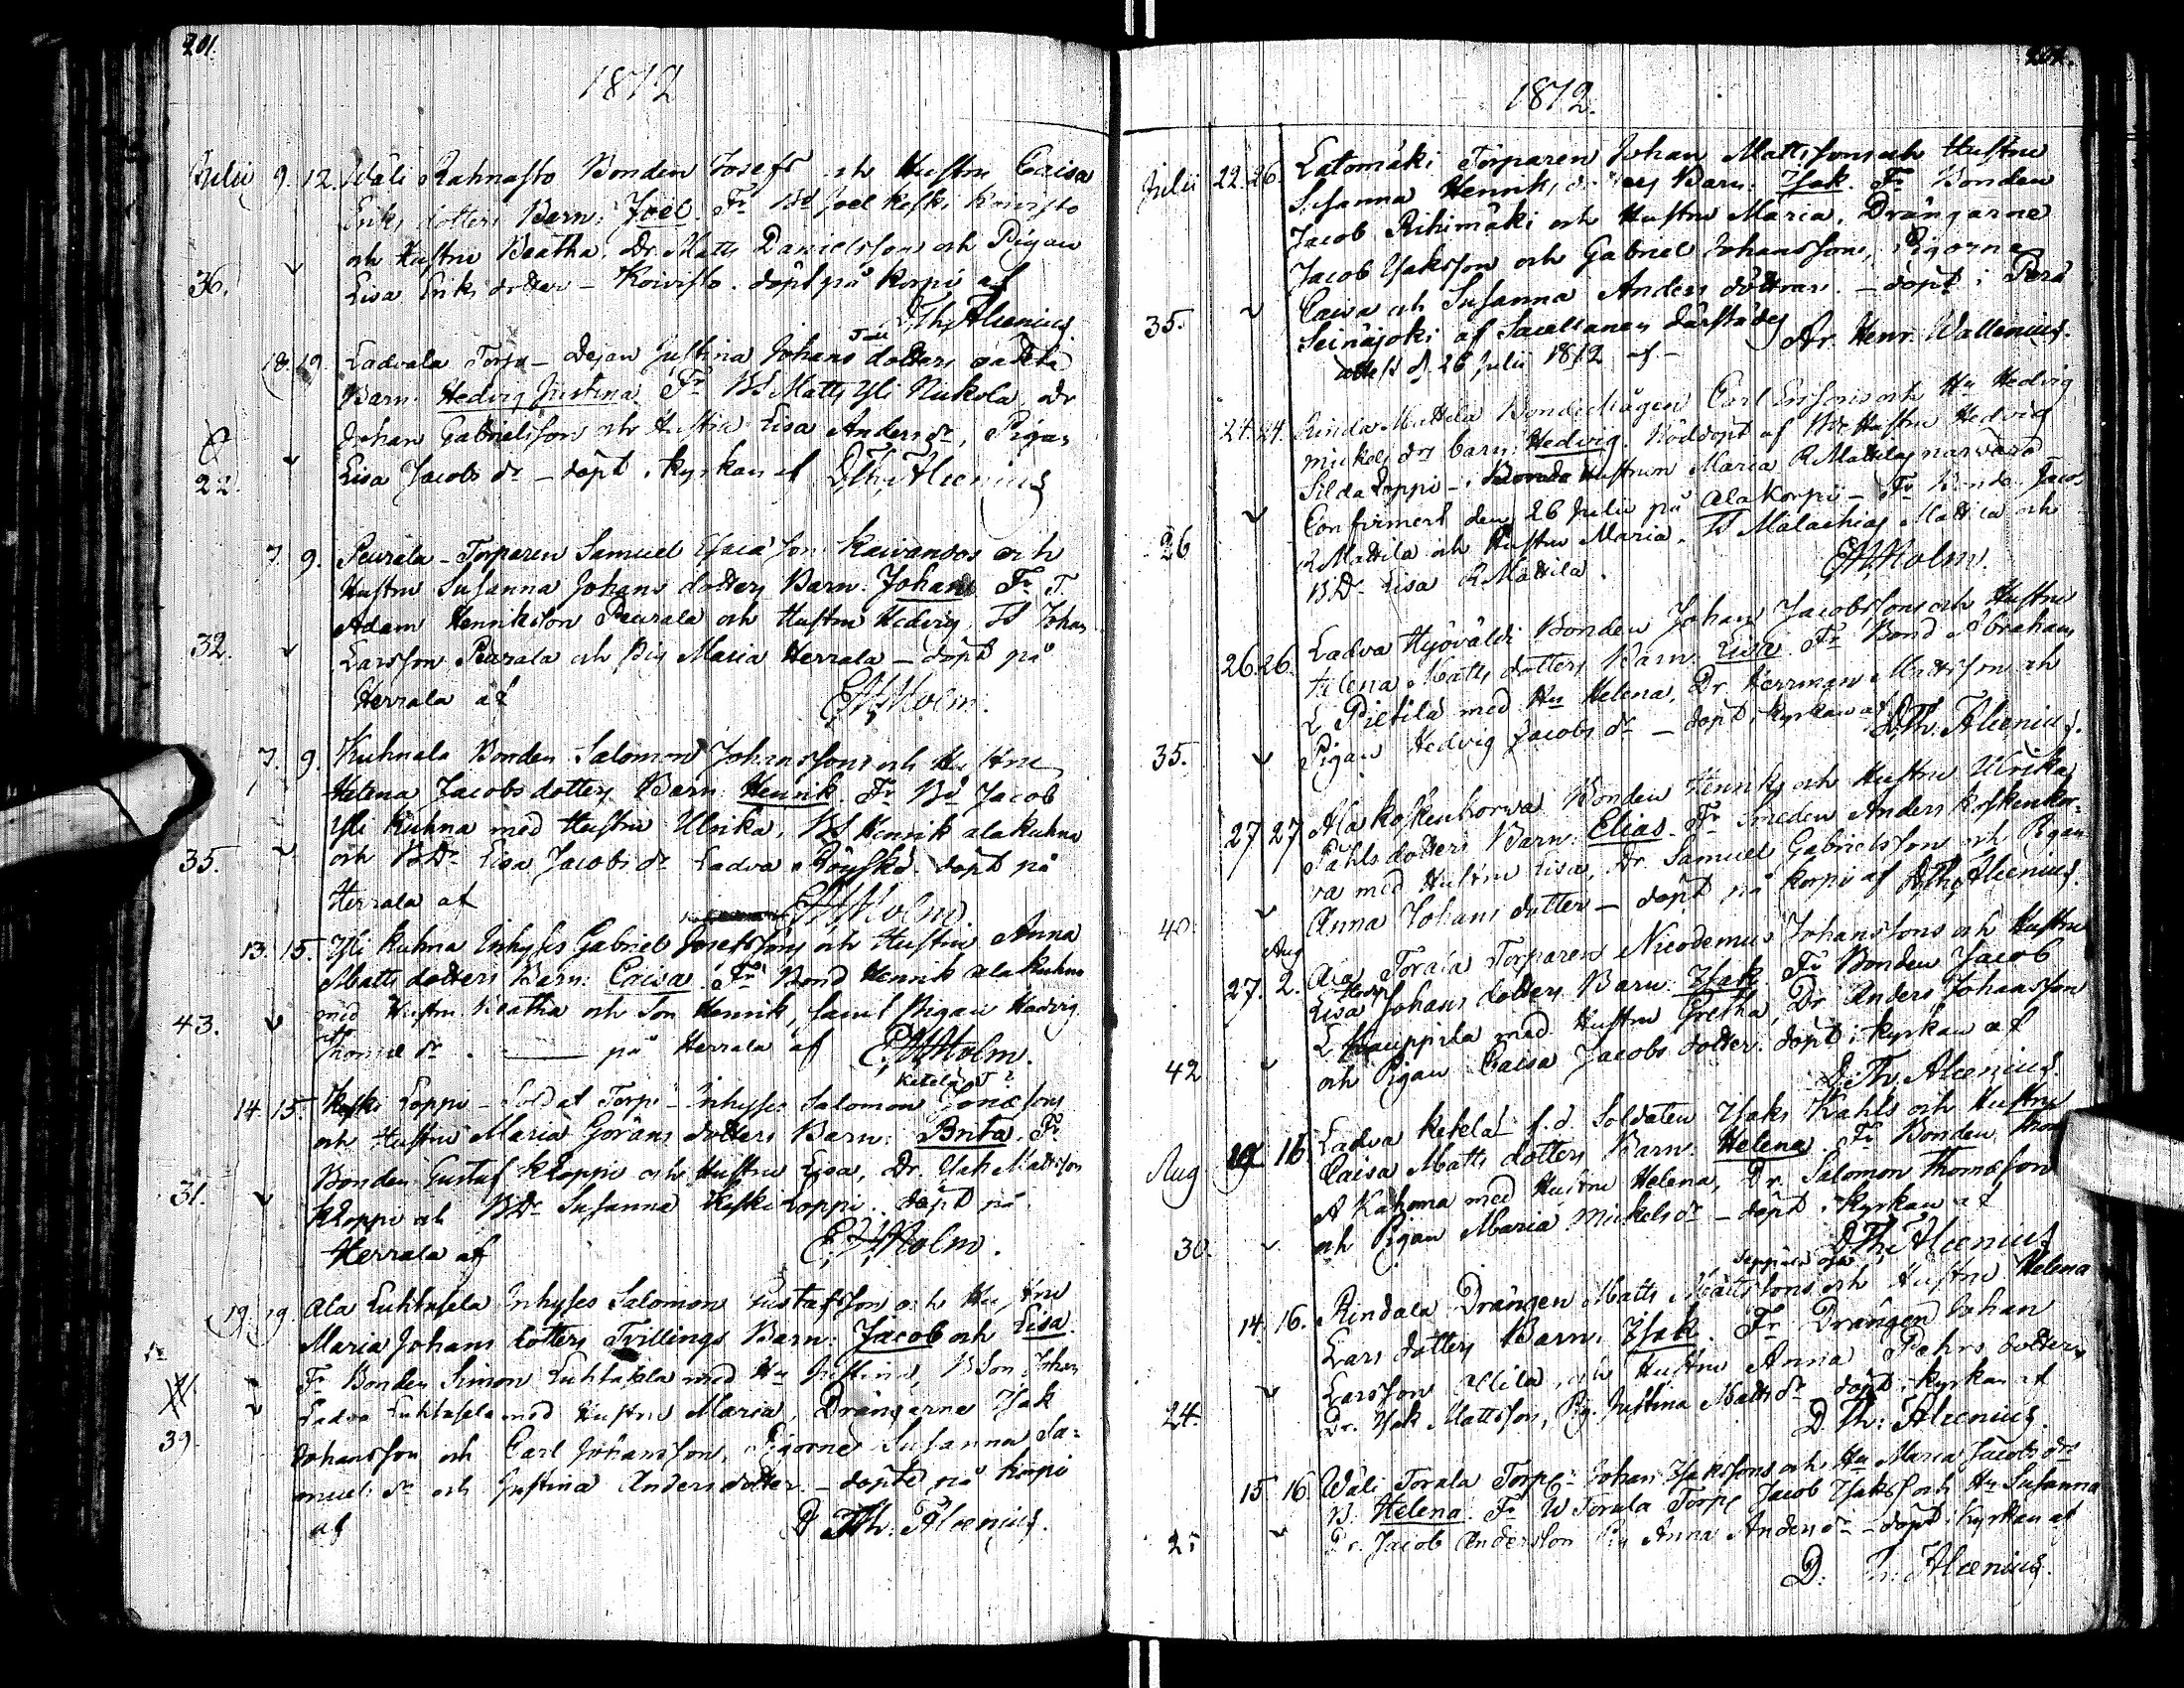 201.
1812
Julii 9. 12. Wäli Rahnasto Bonden Josefs och Hustru Caisa
Eriks dotters Barn: Joel. Fr Bd Joel Koski Koivisto
och Hustru Beatha, Dr. Matts Danielsson och Pigan
36. Lisa Eriks dotter - Koivisto. döpt på Korpi af
D. Th. Alcenius
18. 19. Ladvala Torp - Justina Johans dotters oäckta
Barn: Hedvig Justina. Fr BS Matts Yli Nukola, Dr
Johan Gabrielsson och Hustru Lisa Anders dr, Pigan
22. Lisa Jacobs dr - döpt i kyrkan af D. Th. Alcenius
7. 9. Peurala - Torparen Samuel Esaiæson Kaivandos och
Hustru Susanna Johans dotters Barn: Johan Fr. T.
Adam Henriksson Peurala och Hustru Hedvig, TS Johan
32. Larsson Peurala och Pig Maria Herrala - döpt på
Herrala af E. W. Holm.
7. 9. Kuhnala Bonden Salomon Johanssons och Hustru
Helena Jacobs dotters Barn: Henrik. Fr Bd Jacob
Yli Kuhna med Hustru Ulrika, BS Henrik ala kuhna
35. och BDr Lisa Jacobs dr Ladva Röyskö. döpt på
Herrala af E. W. Holm.
13. 15. Yli kuhna Inhyses Gabriel Josefssons och Hustru Anna
Matts dotters Barn: Caisa. Fr Bond Henrik ala kuhna
med Hustru Beatha och Son Henrik, samt Pigan Hedvig
43. Thomæ dr. — på Herrala af E. W. Holm.
Ketelä T?
14. 15. Koski Loppi - Soldat Torp - Inhyses Salomon Jonæsons
och Hustru Maria Görans dotters Barn: Brita. Fr
Bonden Gustaf K Loppi och Hustru Lisa, Dr. Isak Mattsson
31. K Loppi och BDr Susanna Koski Loppi. döpt på
Herrala af E. W. Holm.
19. 19. Ala Luhtasela Inhyses Salomon Gustafsson och Hustru
Maria Johans dotters Tvillings Barn: Jacob och Lisa.
Fr Bonden Simon Luhtasela med Hu Justina, BSon Johan
Ladva Luhtasela med Hustru Maria, Drängarne Isak
39. Johansson och Carl Johansson, Pigorne Susanna Sa-
muels dr och Justina Anders dotter - döpte på Korpi
af D. Th. Alcenius.
1812.
Julii 22. 26. Latomäki Torparen Johan Mattssons och Hustru
Susanna Henriks dotters Barn: Isak. Fr Bonden
Jacob Rihimäki och Hustru Maria, Drängarne
Jacob Isaksson och Gabriel Johansson, Pigorne
35. Caisa och Susanna Anders döttrar. - döpt i Perä
Seinäjoki af Sacellanen därstädes
attest d. 26 Julii 1812 af Ar. Henr. Wallenius.
24. 24. Rinda Mattila Bonde Mågen Carl Ersons och Hu Hedvig
Mickels drs barn: Hedvig. Nöddöpt af Bde Hustru Hedvig
Silda Loppi - i Hustrun Maria R Mattilas närvaro
Confirmerd den 26 Julii på ala Korpi - Fr Bonde Jacob
26 R Mattila och Hustru Maria, TS Malachias Mattila och
BDr Lisa R Mattila. E. W. Holm.
26. 26. Ladva Hyöväldi Bonden Johan Jacobssons och Hustru
Helena Matts dotters Barn: Lisa. Fr Bond Abraham
L Pietilä med Hu Helena, Dr Herrman Mattsson och
35. Pigan Hedvig Jacobs dr - döpt i kyrkan af D. Th. Alcenius.
27 27 Ala koskenkorva Bonden Henriks och Hustru Ulrika
Påhls dotters Barn: Elias. Fr Smeden Anders koskenkor-
va med Hustru Lisa, Dr. Samuel Gabrielsson och Pigan
40. Anna Johans dotter - döpt på Korpi af D. Th. Alcenius.
Aug
27. 2. Ala Torala Torparen Nicodemus Johanssons och Hustru
Lisa Johans dotters Barn: Isak. Fr Bonden Jacob
L Kauppila med Hustru Gretha, Dr Anders Johansson
42 och Pigan Caisa Jacobs dotter. döpt i kyrkan af
D. Th. Alcenius.
Aug 16. Ladva Ketelä f. d. Soldaten Isaks Kahls och Hustru
Caisa Matts dotters Barn: Helena. Fr Bonden Thom
A Kahma med Hustru Helena, Dr. Salomon Thomæson
30. och Pigan Maria Mickels dr - döpt i kyrkan af
D. Th. Alcenius
14. 16. Rindala Drängen Matts Mattssons och Hustru Helena
Lars dotters Barn: Isak. Fr Drängen Johan
Larsson Allila, och Hustru Anna Pehrs dotter,
24. Dr. Isak Mattsson, Pig. Justina Matts dr döpt i kyrkan af
D. Th: Alcenius.
15 16. Wäli Torala Torp: Johan Isakssons och Hu Maria Jacobs drs
B. Helena. Fr W Torala Torp Jacob Isaksson och Hu Susanna
25 Dr. Jacob Andersson Pig Anna Anders dr - döpt i Kyrkan af
D. Th. Alcenius.